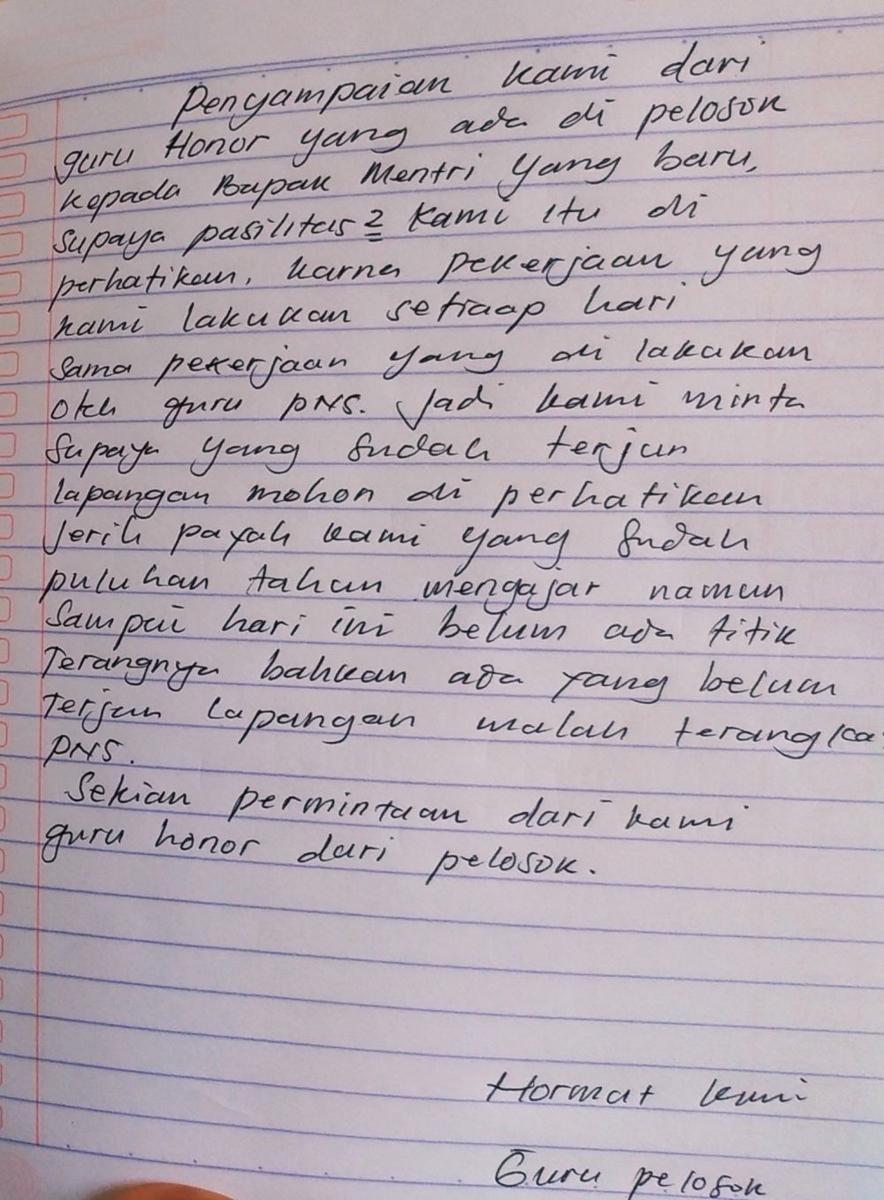 Penyampaian kami dari
guru Honor yang ada di pelosok
kepada Bapak Mentri yang baru,
supaya pasilitas2 kami itu di
perhatikan, karna pekerjaan yang
kami lakukan setiaap hari
sama pekerjaan yang di lakakan
oleh guru PNS. Jadi kami minta
supaya yang sudah terjun
lapangan mohon di perhatikan
jerih payah kami yang sudah
puluhan tahun mengajar namun
sampai hari ini belum ada titik
Terangnya bahkan ada yang belum
Terjun lapangan malah terangka
PNS.
Sekian permintaan dari kami
guru honor dari pelosok.
Hormat kami
Guru pelosok